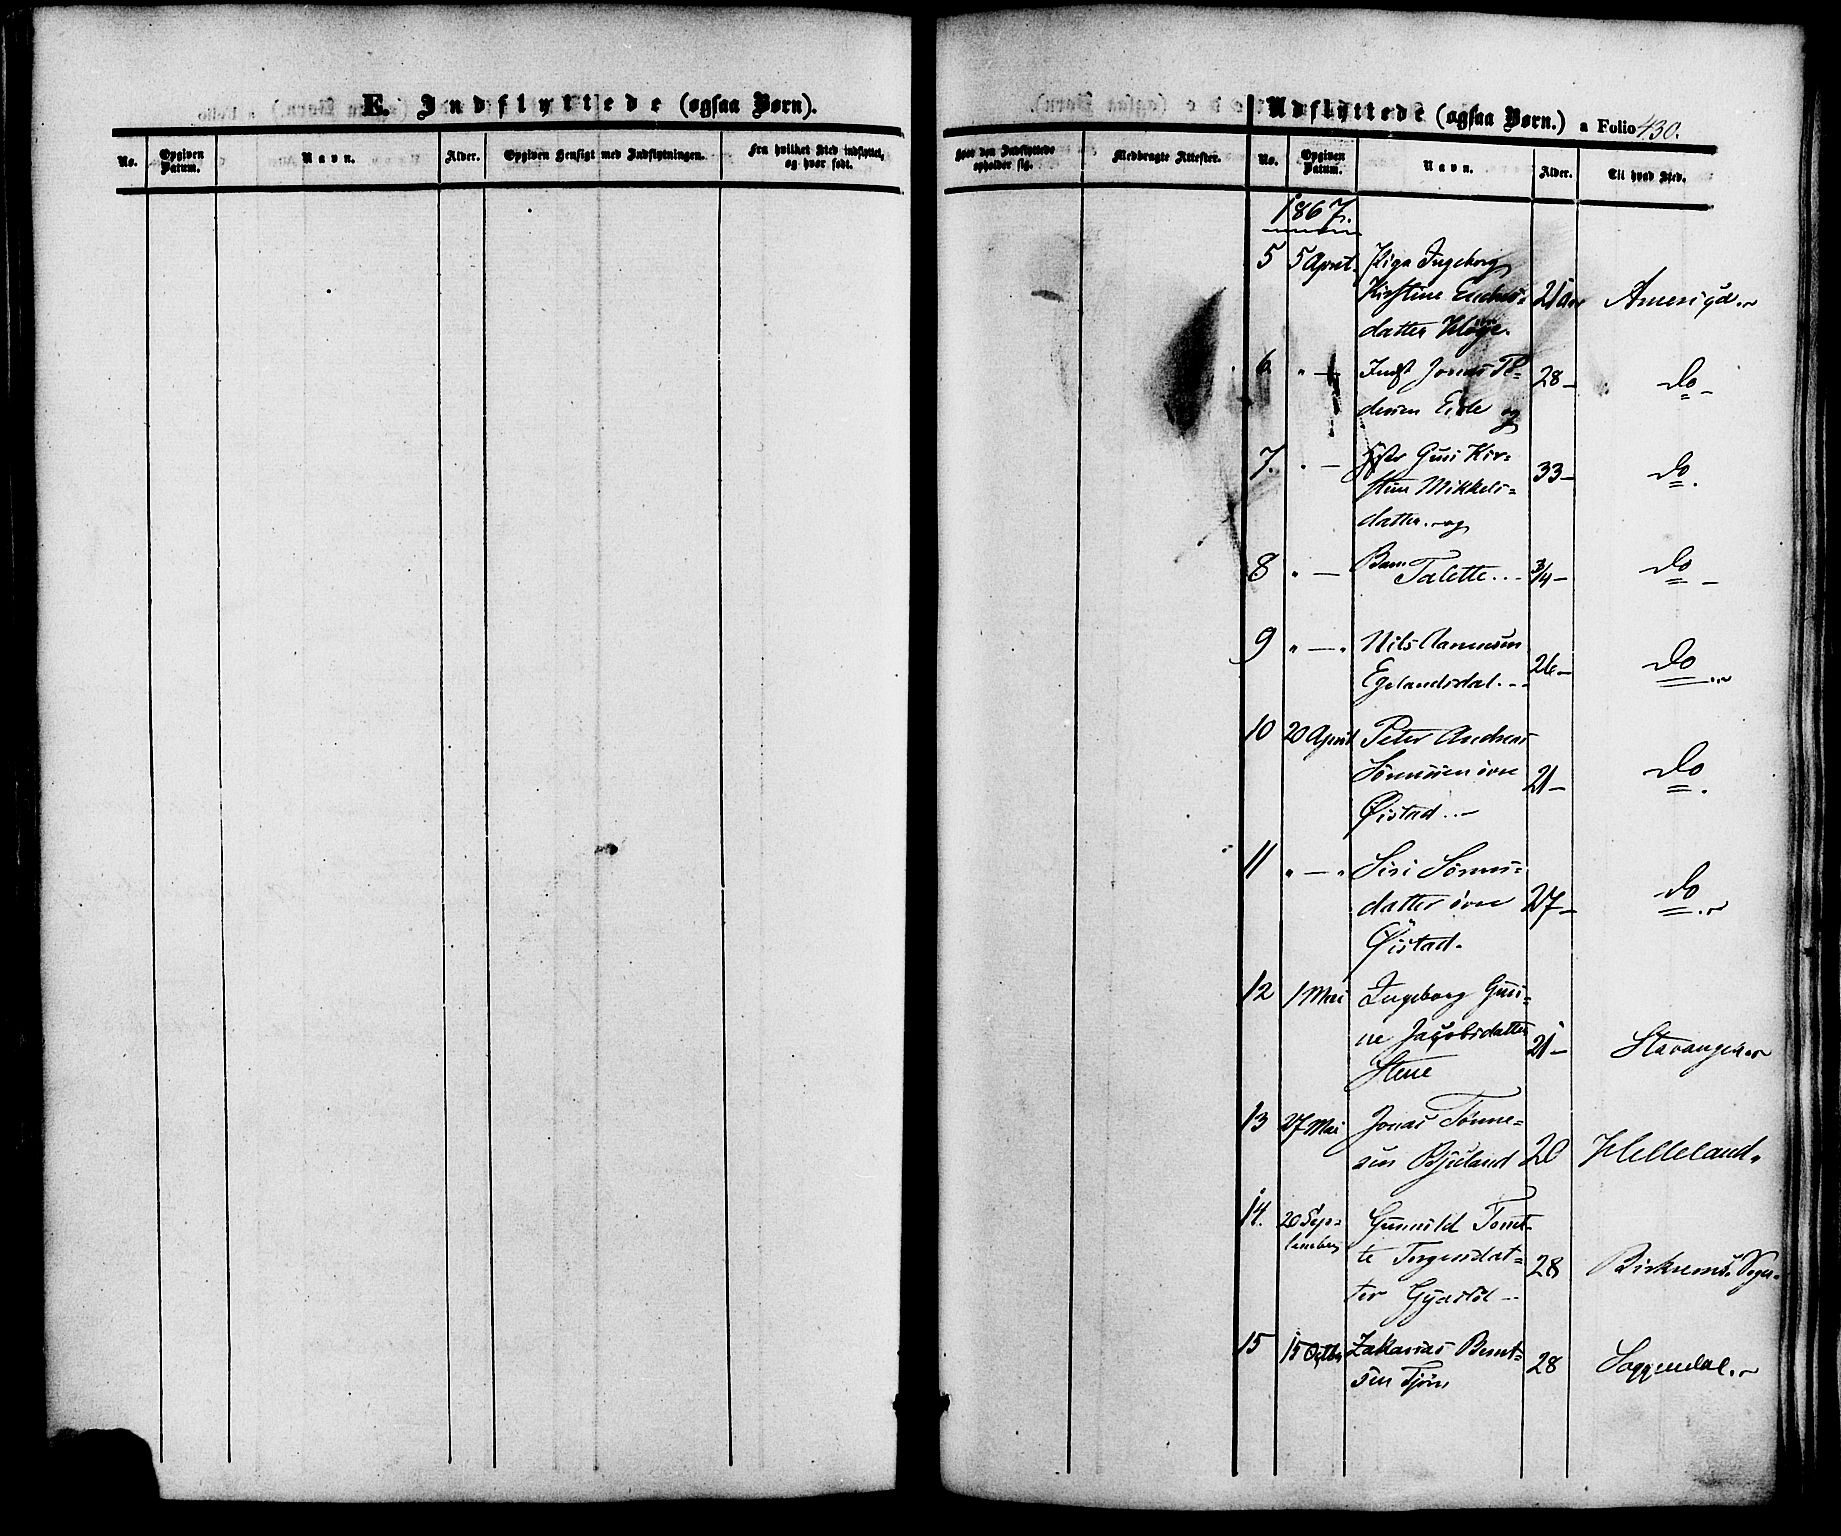 E. Indflyttede (ogsaa Børn).
No.
Opgiven Datum.
Navn.
Alder.
Opgiven Hensigt med Indflytningen.
Fra hvilket Sted indflyttet, og hvor født.
Hvor den Indflyttede opholder sig.
Medbragte Attester.
Udflyttede (ogsaa Børn.) a Folio 430.
No.
Opgiven Datum.
Navn.
Alder.
Til hvad Sted.
1867.
5 5 April. Pige Ingeborg
Kirstine
datter 21 Aar Amerika
6 " — Inds Jonas
Eide og 28 — do —
7. " — Guri Kir-
stine Mikkels-
datter. og 33 — do.
8 " — Barn Talette. .. 3/4 — do —
9 " — " Nils
Egelandsdal. -- 26 — do
10 20 April Peter Andreas
Sørensen øvre
Øistad .. 21 — do.
11 " — " Siri Sørens-
datter øvre
Øistad. 27 — do
12 1 Mai Ingeborg Guri-
ne Jacobsdatter
Stene 21 — Stavanger
13 27 Mai Jonas Tønne-
sen Bjuland 20 Helleland.
14. 20 Sep-
tember Gunild Tomt-
te Torgersdat-
ter 28 Birkrems
15 15 Octbr Zakarias Bernt-
sen Tjørn 28 Soggendal